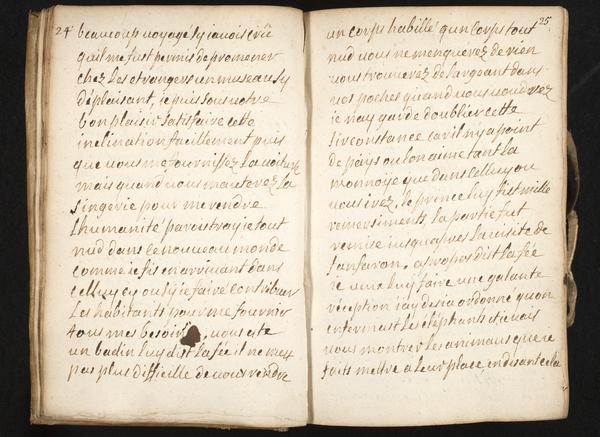 24
beaucoup voyagé sy javois crû
quil me fust permis de promener
chez les etrangers un museau sy
déplaisant, je puis sous vostre
bon plaisir satisfaire cette
inclination facillement puis
que vous me fournissez la voiture
mais quand vous mauterez la
singerie pour me rendre
lhumanité paroistray je tout
nud dans ce nouveau monde
comme je fis en arrivant dans
celluy cy ou sy je faire contribuer
les habitants pour me fournir
tous mes besoins, vous este
un badin luy dist la fée il ne mest
pas plus difficille de vous rendre
25
un corps habillé qun corps tout
nud vous ne menquerez de rien
vous trouverez de largeant dans
vos poches quand vous voudrez
je nay garde doublier cette
sirconstance car il ny a point
de pays ou lon aime tant la
monnoye que dans celluy ou
vous irez, le prince luy fist mille
remersiments, la partie fut
remise jusquapres la visite de
fanfaron, a propos dit la fée
je veux luy faire une galante
réception jay desja ordonné quon
enfermast les eléphants et je vais
vous montrer les animaux que je
faits mettre a leur place en disant cela